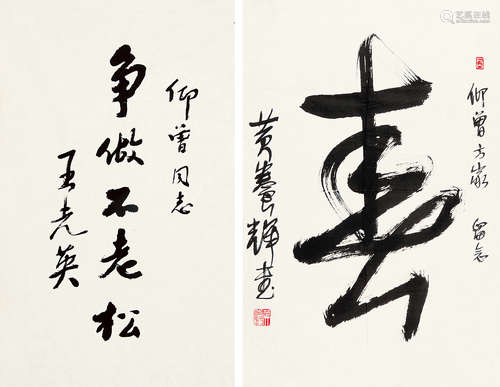 仰曾同志
争做不老松
王光英
仰曾方家 留念
寿
黄养辉书